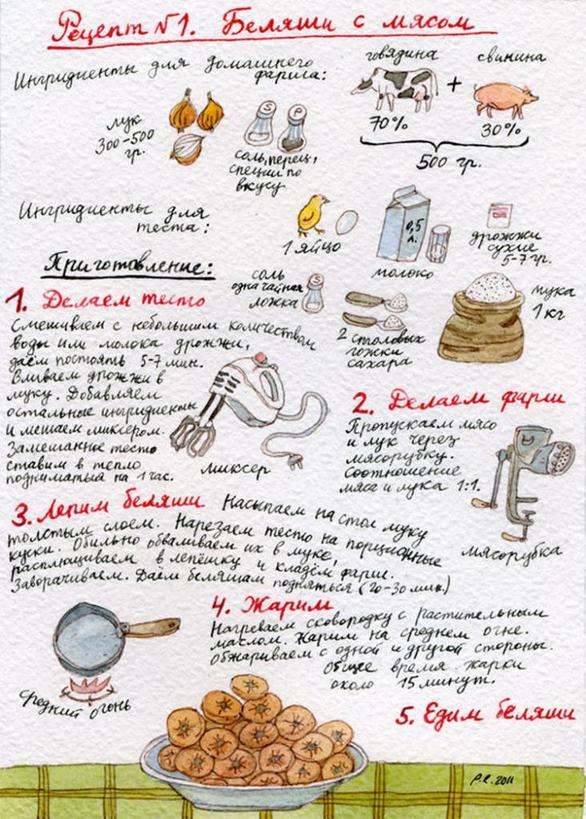 Рецепт №1. Беляши с мясом
Ингридиенты для домашнего
фарша:
лук
300-500
гр.
соль, перец,
специи по
вкусу
говядина
свинина
+
70%
30%
500 гр.
Ингридиенты для
теста:
1 яйцо
0,5
л.
молоко
дрожжи
сухие
5-7 гр.
соль
одна чайная
ложка
2 столовых
ложки
сахара
мука
1 кг
Приготовление:
1. Делаем тесто
Смешиваем с небольшим количеством
воды или молока дрожжи,
даём постоять 5-7 мин.
Вливаем дрожжи в
муку. Добавляем
остальные ингридиенты
и мешаем миксером.
Замешанное тесто
ставим в тепло
подниматься на 1 час.
миксер
2. Делаем фарш
Пропускаем мясо
и лук через
мясорубку.
Соотношение
мяса и лука 1:1.
мясорубка
3. Лепим беляши Насыпаем на стол муку
толстым слоем. Нарезаем тесто на порционные
куски. Обильно обваливаем их в муке,
расплющиваем в лепёшку и кладём фарш.
Заворачиваем. Даём беляшам подняться (20-30 мин.)
4. Жарим
Нагреваем сковородку с растительным
маслом. Жарим на среднем огне.
Обжариваем с одной и другой стороны.
Общее время жарки
около 15 минут.
Средний огонь
5. Едим беляши
Р.Е. 2011